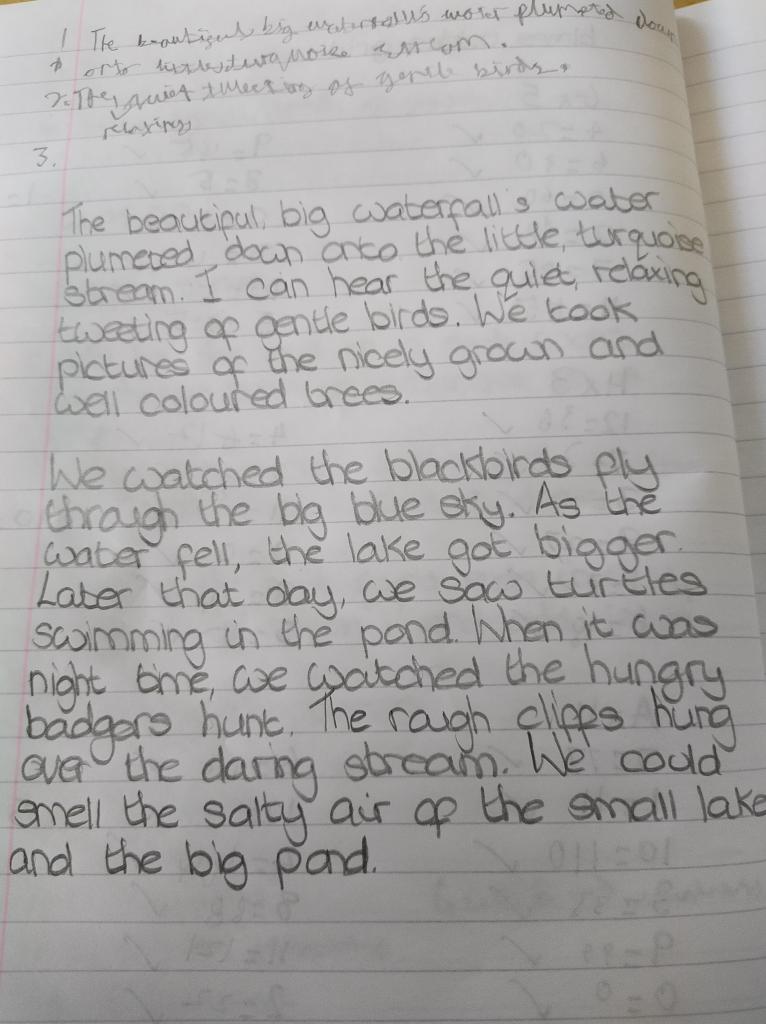 1 The beautiful big waterfall's water plumeted down
onto little turquoise stream.
2. The quiet tweeting of gentle birds.
relaxing
3.
The beautiful, big waterfall's water
plumeted down onto the little, turquoise
stream. I can hear the quiet, relaxing
tweeting of gentle birds. We took
pictures of the nicely grown and
well coloured trees.
We watched the blackbirds fly
through the big blue sky. As the
water fell, the lake got bigger.
Later that day, we saw turtles
swimming in the pond. When it was
night time, we watched the hungry
badgers hunt. The rough cliffs hung
over the daring stream. We could
smell the salty air of the small lake
and the big pond.